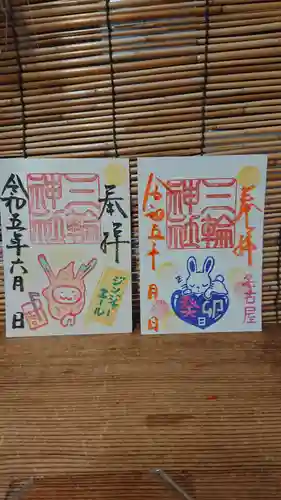 奉拝
三輪
神社
令和五年六月 日
ジンジャーエール
奉拝
三輪
神社
令和五年 月 日
癸卯
日
名古屋